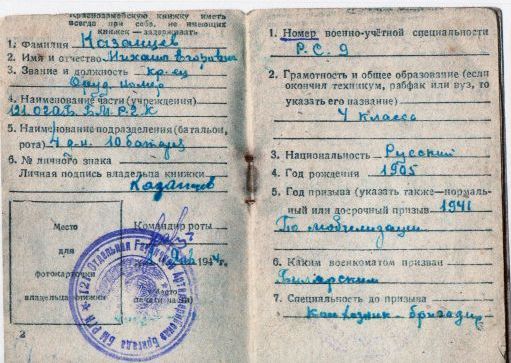 Красноармейскую книжку иметь
всегда при себе. не имеющих
книжек — задерживать
1. Фамилия Казанцев
2. Имя и отчество Михаил Егорович
3. Звание и должность кр-ец
Оруд. номер
4. Наименование части (учреждения)
121 ОГАБ Б.М. РГК
5. Наименование подразделения (батальон,
рота) 4 д-н. 10 батарея
6. № личного знака
Личная подпись владельца книжки
Казанцев
Место
для
фотокарточки
владельца книжки
Командир роты
194 г.
121 Отдельная Гаубичная Артиллерийская Бригада БМ РГК
2
1. Номер военно-учётной специальности
Р.С. 9
2. Грамотность и общее образование (если
окончил техникум, рабфак или вуз, то
указать его название)
4 класса
3. Национальность Русский
4. Год рождения 1905
5. Год призыва (указать также—нормаль-
ный или досрочный призыв 1941
По мобилизации
6. Каким военкоматом призван
Билярским
7. Специальность до призыва
бригадир